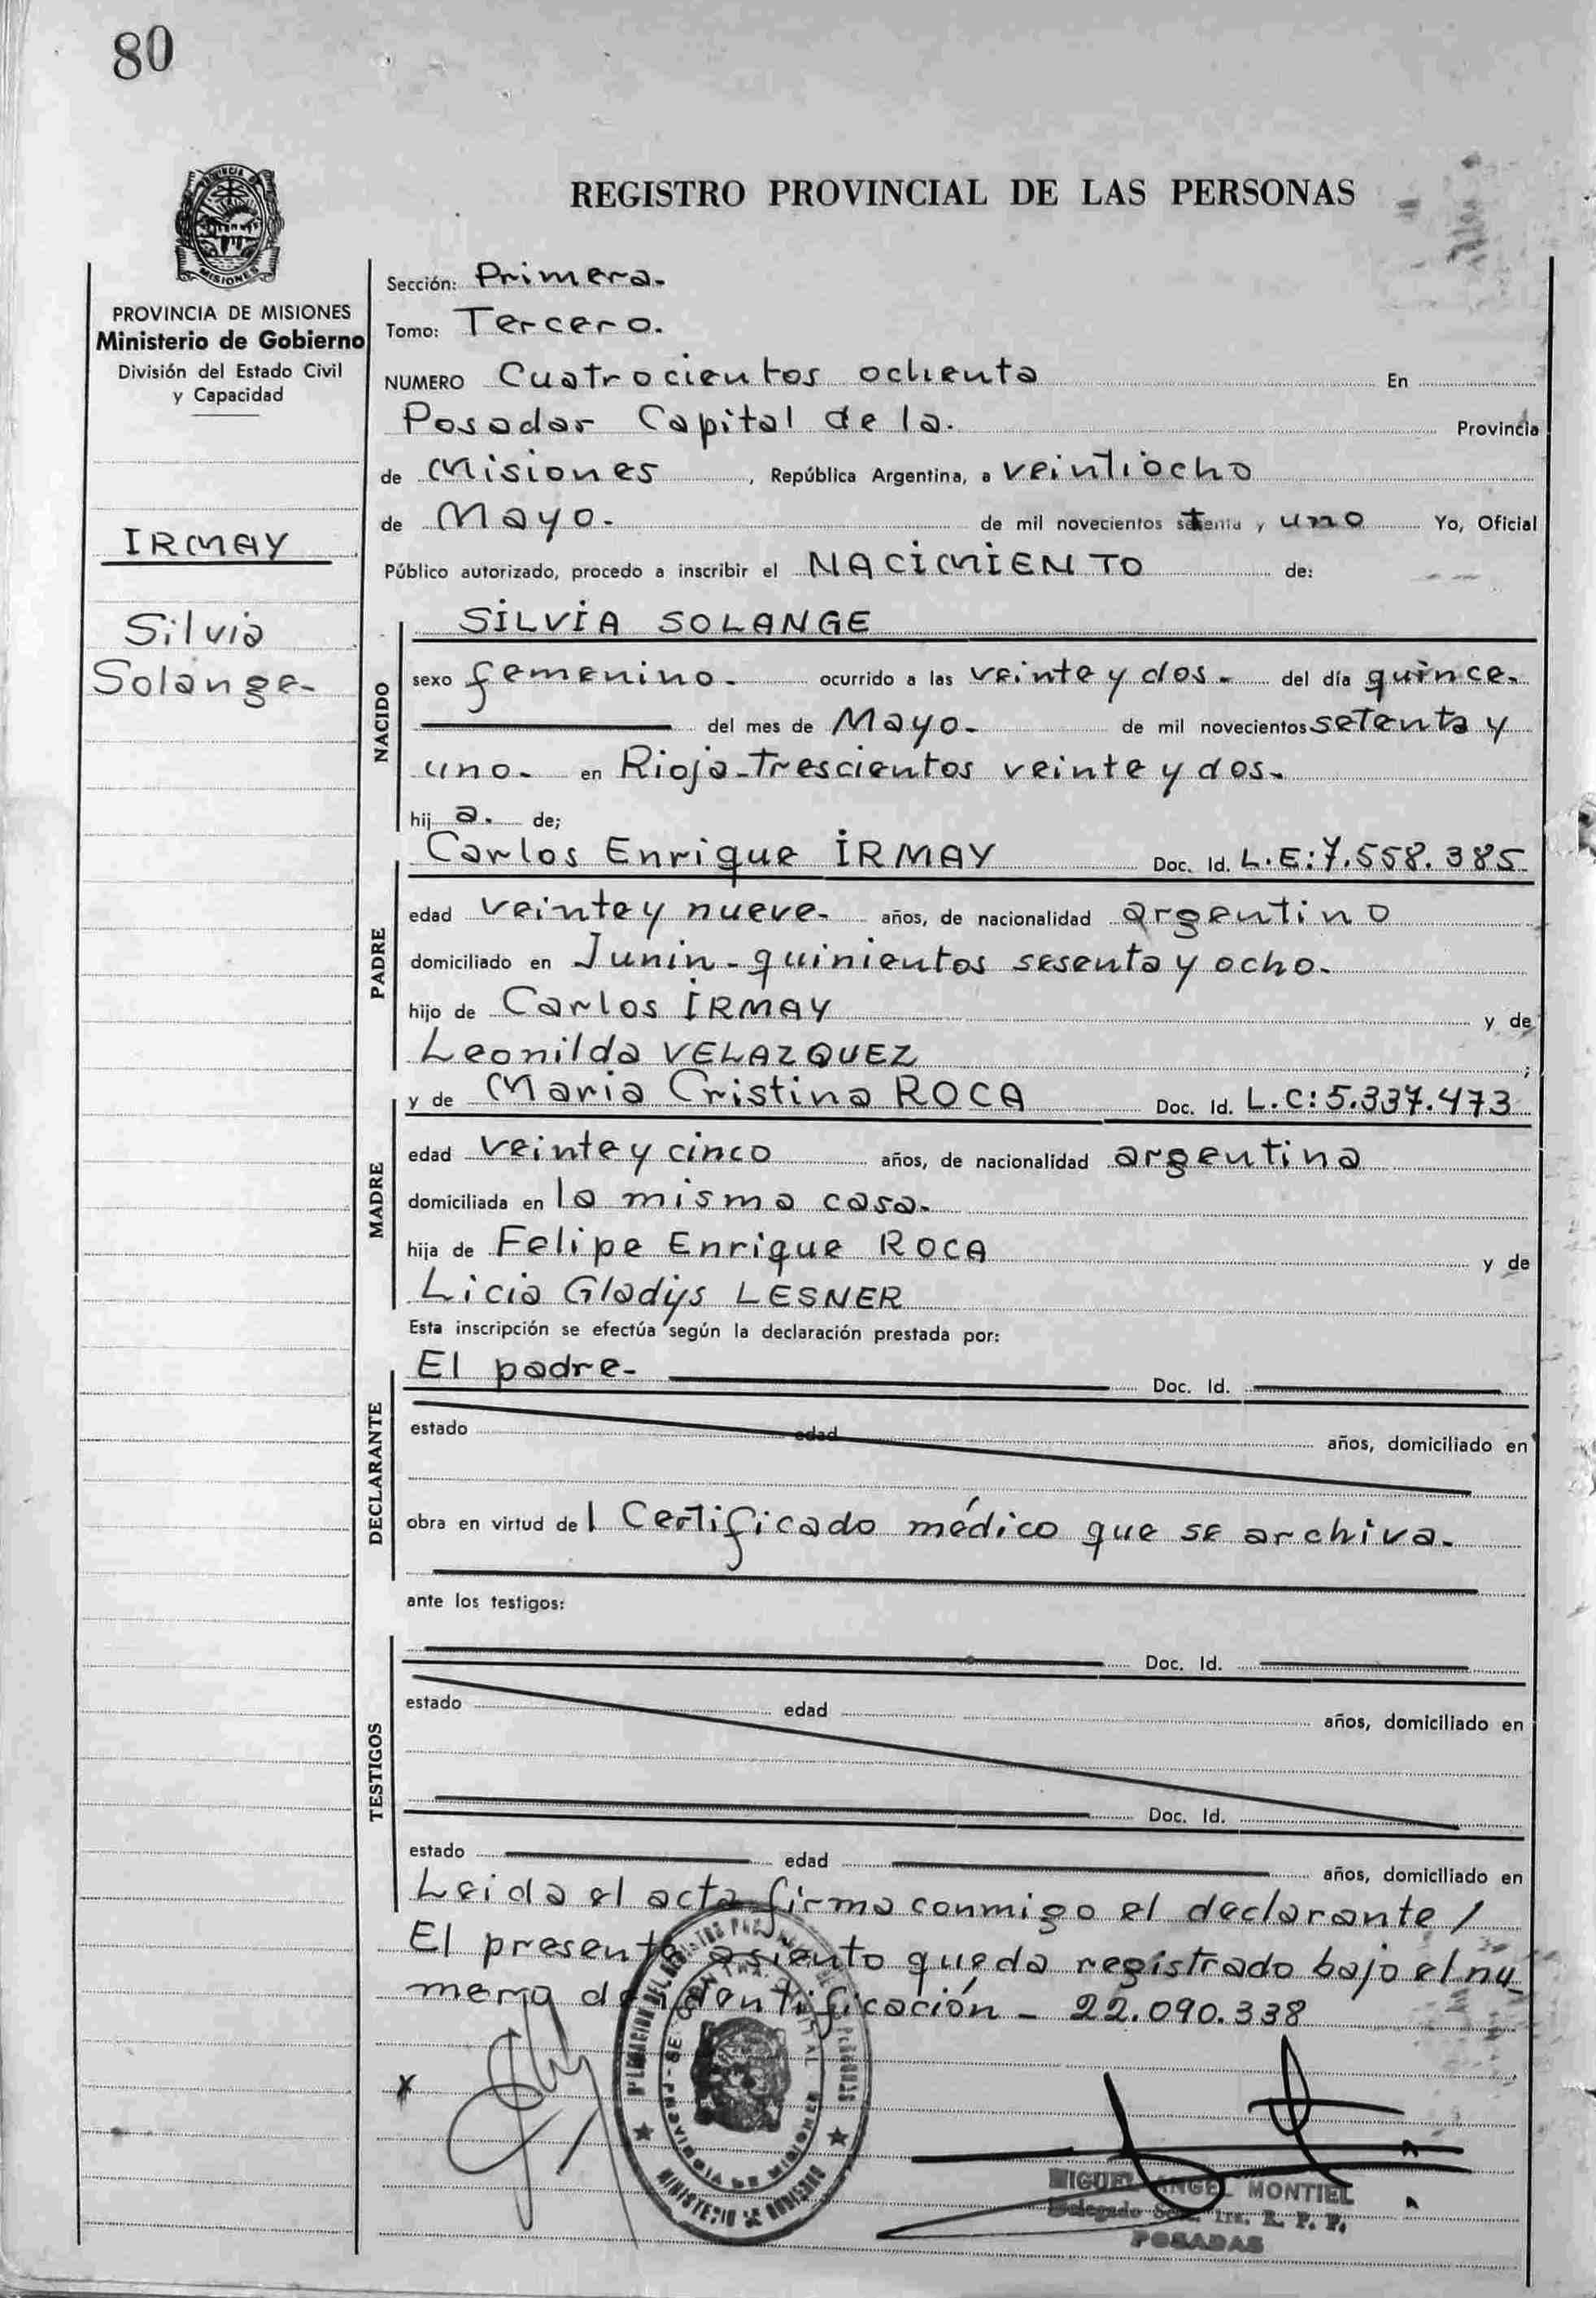 80
REGISTRO PROVINCIAL DE LAS PERSONAS
PROVINCIA DE MISIONES
Ministerio de Gobierno
División del Estado Civil
y Capacidad
IRMAY
Silvia
Solange-
Sección: Primera.
Tomo: Tercero.
NUMERO Cuatrocientos ochenta En
Posadas Capital de la. Provincia
de Misiones, República Argentina, a veintiocho
de Mayo. de mil novecientos setenta y uno Yo, Oficial
Público autorizado, procedo a inscribir el NACIMIENTO de:
NACIDO
SILVIA SOLANGE
sexo femenino. ocurrido a las veinte y dos. del día quince.
del mes de Mayo. de mil novecientos setenta y
uno. en Rioja-Trescientos veinte y dos.
hij a. de;
PADRE
Carlos Enrique IRMAY Doc. Id. L.E:7.558.385
edad veinte y nueve- años, de nacionalidad argentino
domiciliado en Junin-quinientos sesenta y ocho.
hijo de Carlos IRMAY y de
Leonilda VELAZQUEZ ;
MADRE
y de Maria Cristina ROCA Doc. Id. L.C:5.337.473
edad veinte y cinco años, de nacionalidad argentina
domiciliada en la misma casa.
hija de Felipe Enrique ROCA y de
Licia Gladys LESNER
Esta inscripción se efectúa según la declaración prestada por:
DECLARANTE
El padre- Doc. Id.
estado edad años, domiciliado en
obra en virtud de l Certificado médico que se archiva.
ante los testigos:
TESTIGOS
Doc. Id.
estado edad años, domiciliado en
Doc. Id.
estado edad años, domiciliado en
Leida el acta firma conmigo el declarante/
El presente asiento queda registrado bajo el nu-
mero de identificación - 22.090.338
x
MIGUEL ANGEL MONTIEL
Delegado Secc. 1ra. R. P. P.
POSADAS
PROVINCIA DE MISIONES
MINISTERIO DE GOBIERNO